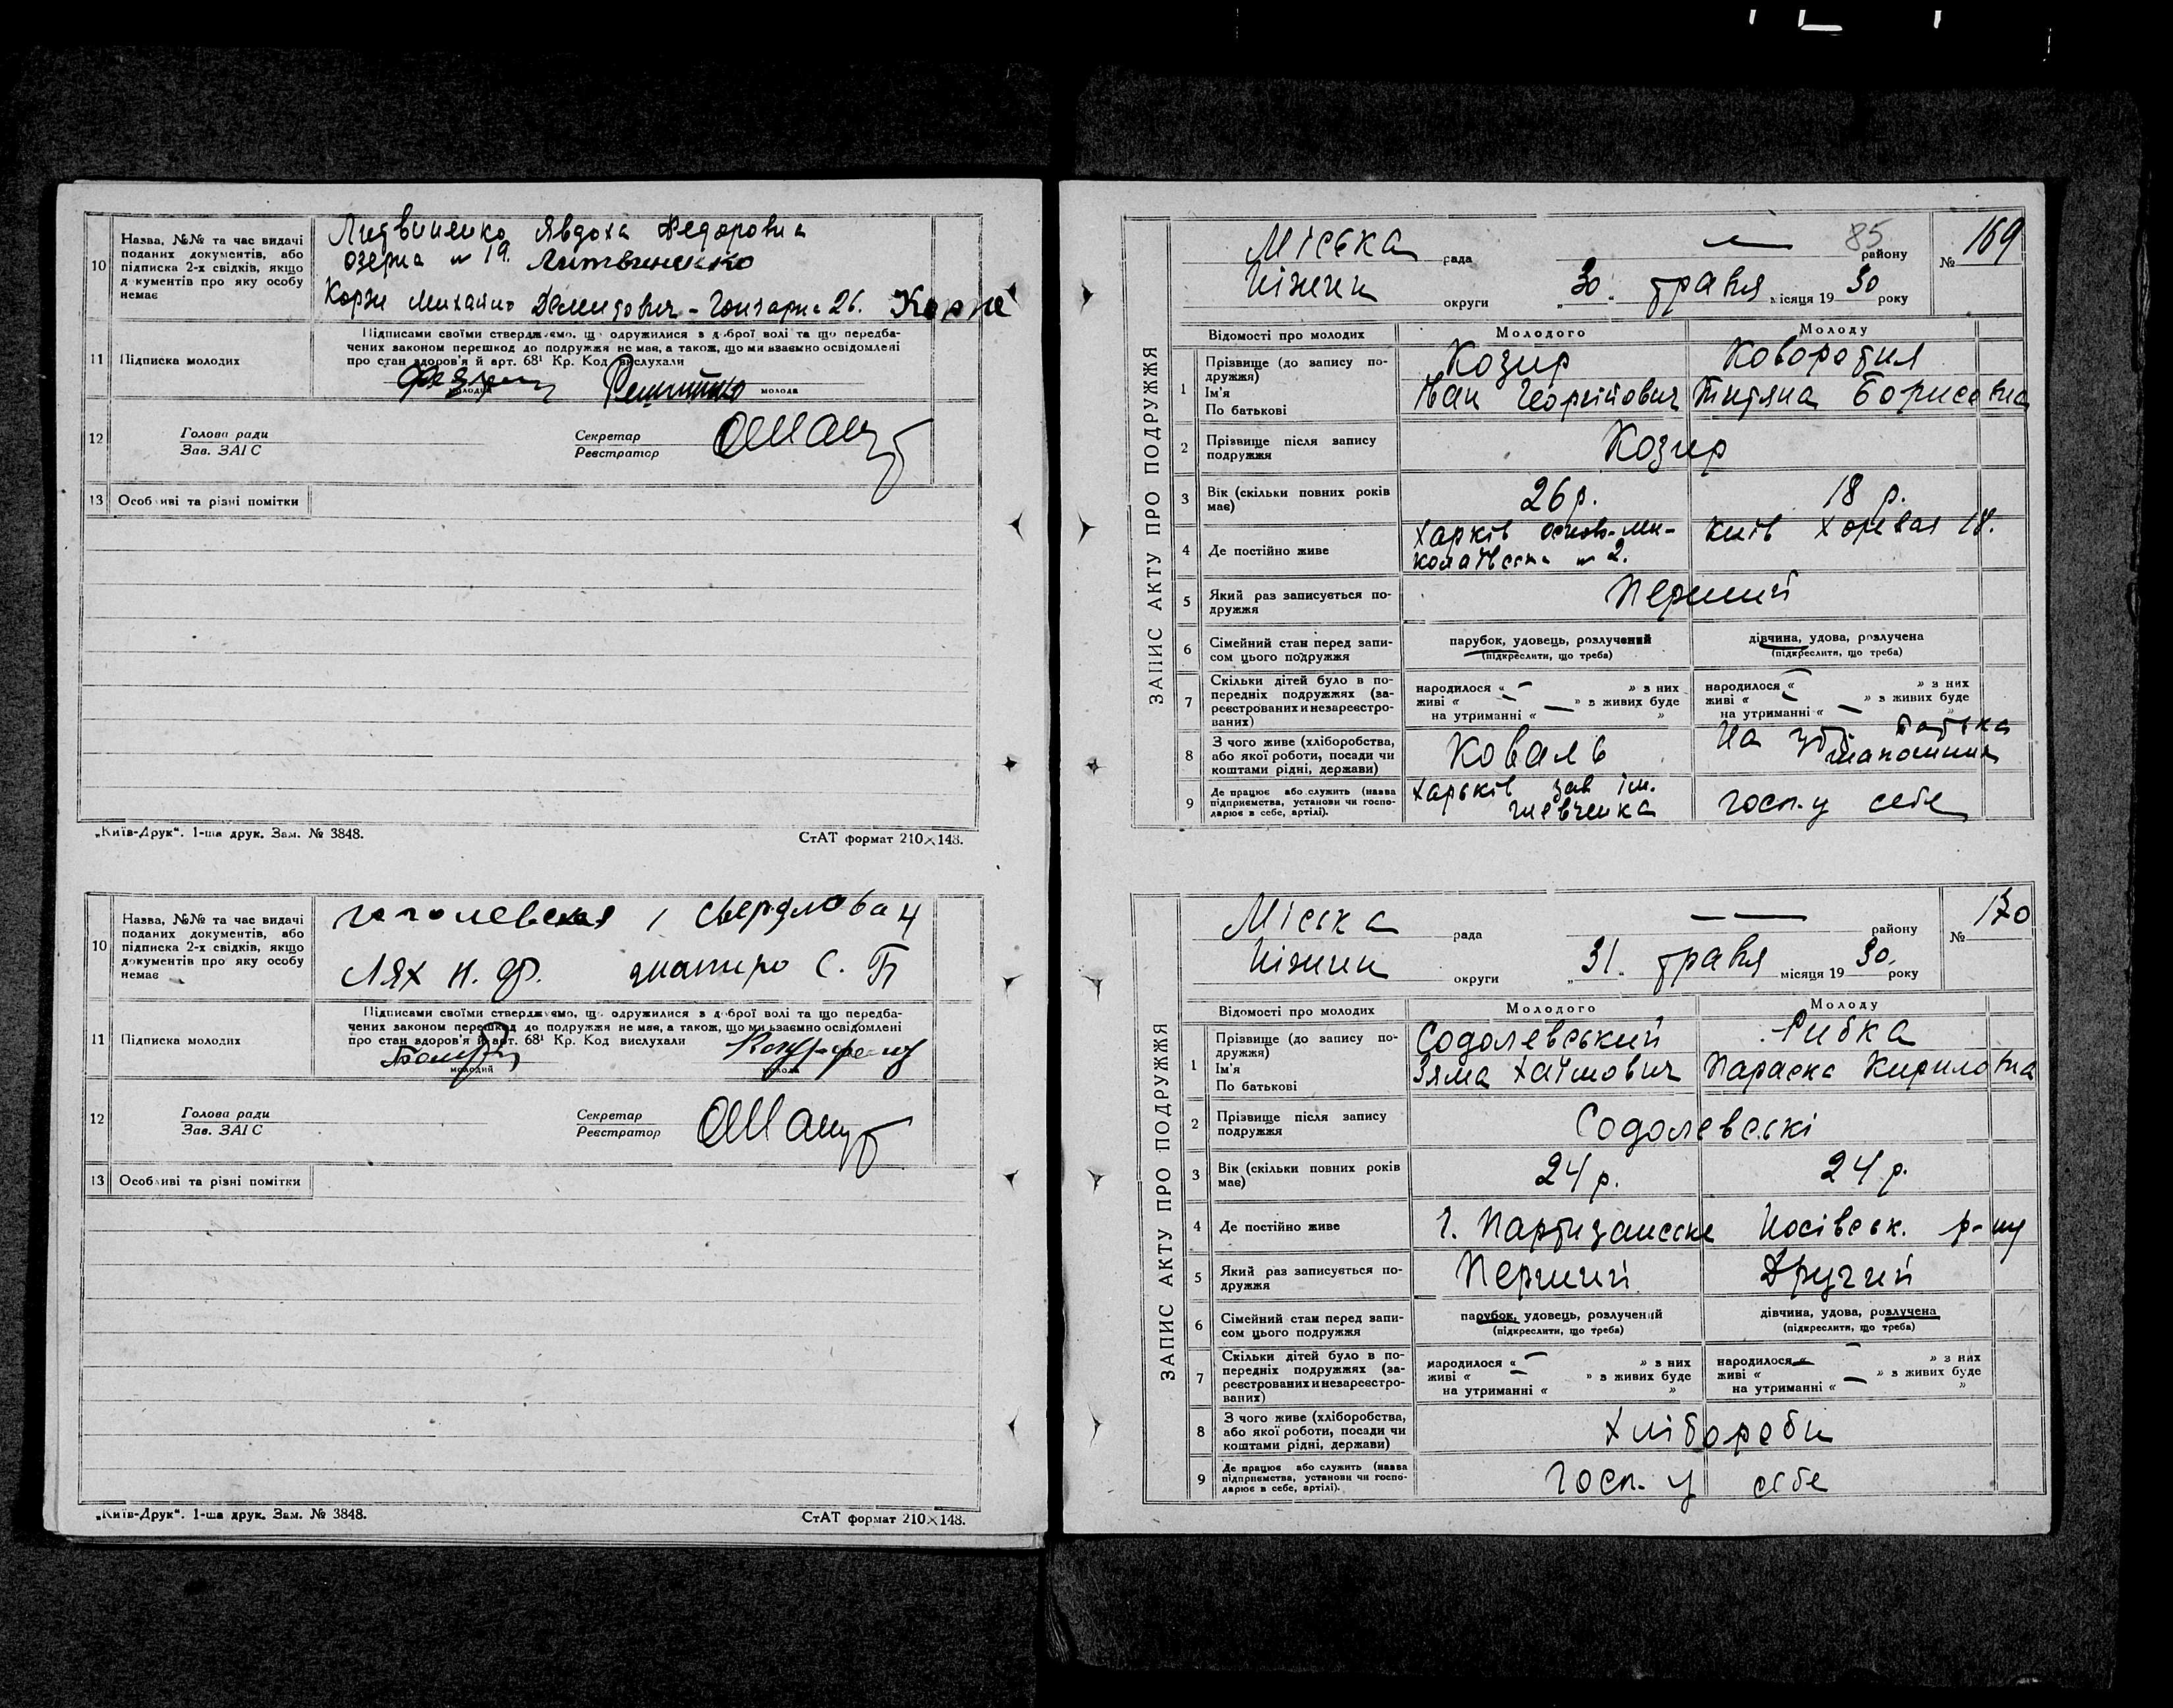 10 Назва, №№ та час видачі
поданих документів, або
підписка 2-х свідків, якщо
д кументів про яку особу
немає
Литвиненко Явдоха Федоровна
озерна № 19. Литвиненко
Корж Михайло Демидович - Гончарна 26. Корж
11 Підписка молодих
Підписами своїми стверджуємо, що одружилися з доброї волі та що передба-
чених законом перешкод до подружжя не має, а також, що ми взаємно освідомлені
про стан здоров'я й арт. 68¹ Кр. Код вислухали
молодий молода
12 Голова ради
Зав. ЗАГС
Секретар
Реєстратор
13 Особливі та різні помітки
„Київ-Друк“. 1-ша друк. Зам. № 3848. СтАТ формат 210×148.
10 Назва, №№ та час видачі
поданих документів, або
підписка 2-х свідків, якщо
документів про яку особу
немає
гоголевская 1 Свердлова 4
Лях Н. Ф. шапиро С. Б
11 Підписка молодих
Підписами своїми стверджуємо, що одружилися з доброї волі та що передба-
чених законом перешкод до подружжя не має, а також, що ми взаємно освідомлені
про стан здоров'я й арт. 68¹ Кр. Код вислухали
молодий молода
12 Голова ради
Зав. ЗАГС
Секретар
Реєстратор
13 Особливі та різні помітки
„Київ-Друк“. 1-ша друк. Зам. № 3848. СтАТ формат 210×148.
ЗАПИС АКТУ ПРО ПОДРУЖЖЯ
85
Міська рада — району № 169
Ніжин округи „30. травня місяця 1930 року
Відомості про молодих Молодого Молоду
1 Прізвище (до запису по-
дружжя)
Ім'я
По батькові
Козир
Іван Георгійович
Татяна Борисовна
2 Прізвище після запису
подружжя
Козир
3 Вік (скільки повних років
має)
26 р. 18 р.
4 Де постійно живе
Харків осново-Ми-
колаївська № 2.
Київ Хоревая 18.
5 Який раз записується по-
дружжя
Перший
6 Сімейний стан перед запи-
сом цього подружжя
парубок, удовець, розлучений
(підкреслити, що треба)
дівчина, удова, розлучена
(підкреслити, що треба)
7 Скільки дітей було в по-
передніх подружжях (за-
реєстрованих и незареєстро-
ваних)
народилося « — » з них
живі « — » з живих буде
на утриманні « — »
народилося « — » з них
живі « — » з живих буде
на утриманні « — »
8 З чого живе (хліборобства,
або якої роботи, посади чи
коштами рідні, держави)
Коваль
На утр. батька
9 Де працює або служить (назва
підприємства, установи чи госпо-
дарює в себе, артілі).
Харьків зав ім.
шевченка
госп. у себе
ЗАПИС АКТУ ПРО ПОДРУЖЖЯ
Міська рада — — району № 170
Ніжин округи „31. травня місяця 1930. року
Відомості про молодих Молодого Молоду
1 Прізвище (до запису по-
дружжя)
Ім'я
По батькові
Содолевський
Зяма Хаїмович
Рибка
Параска Кириловна
2 Прізвище після запису
подружжя
Содолевські
3 Вік (скільки повних років
має)
24 р. 24 р.
4 Де постійно живе
Носівськ. р-ну
5 Який раз записується по-
дружжя
Перший Другий
6 Сімейний стан перед запи-
сом цього подружжя
парубок, удовець, розлучений
(підкреслити, що треба)
дівчина, удова, розлучена
(підкреслити, що треба)
7 Скільки дітей було в по-
передніх подружжях (за-
реєстрованих и незареєстро-
ваних)
народилося « — » з них
живі « » з живих буде
на утриманні « »
народилося « — » з них
живі « — » з живих буде
на утриманні « »
8 З чого живе (хліборобства,
або якої роботи, посади чи
коштами рідні, держави)
Хлібороби
9 Де працює або служить (назва
підприємства, установи чи госпо-
дарює в себе, артілі).
Госп. у себе